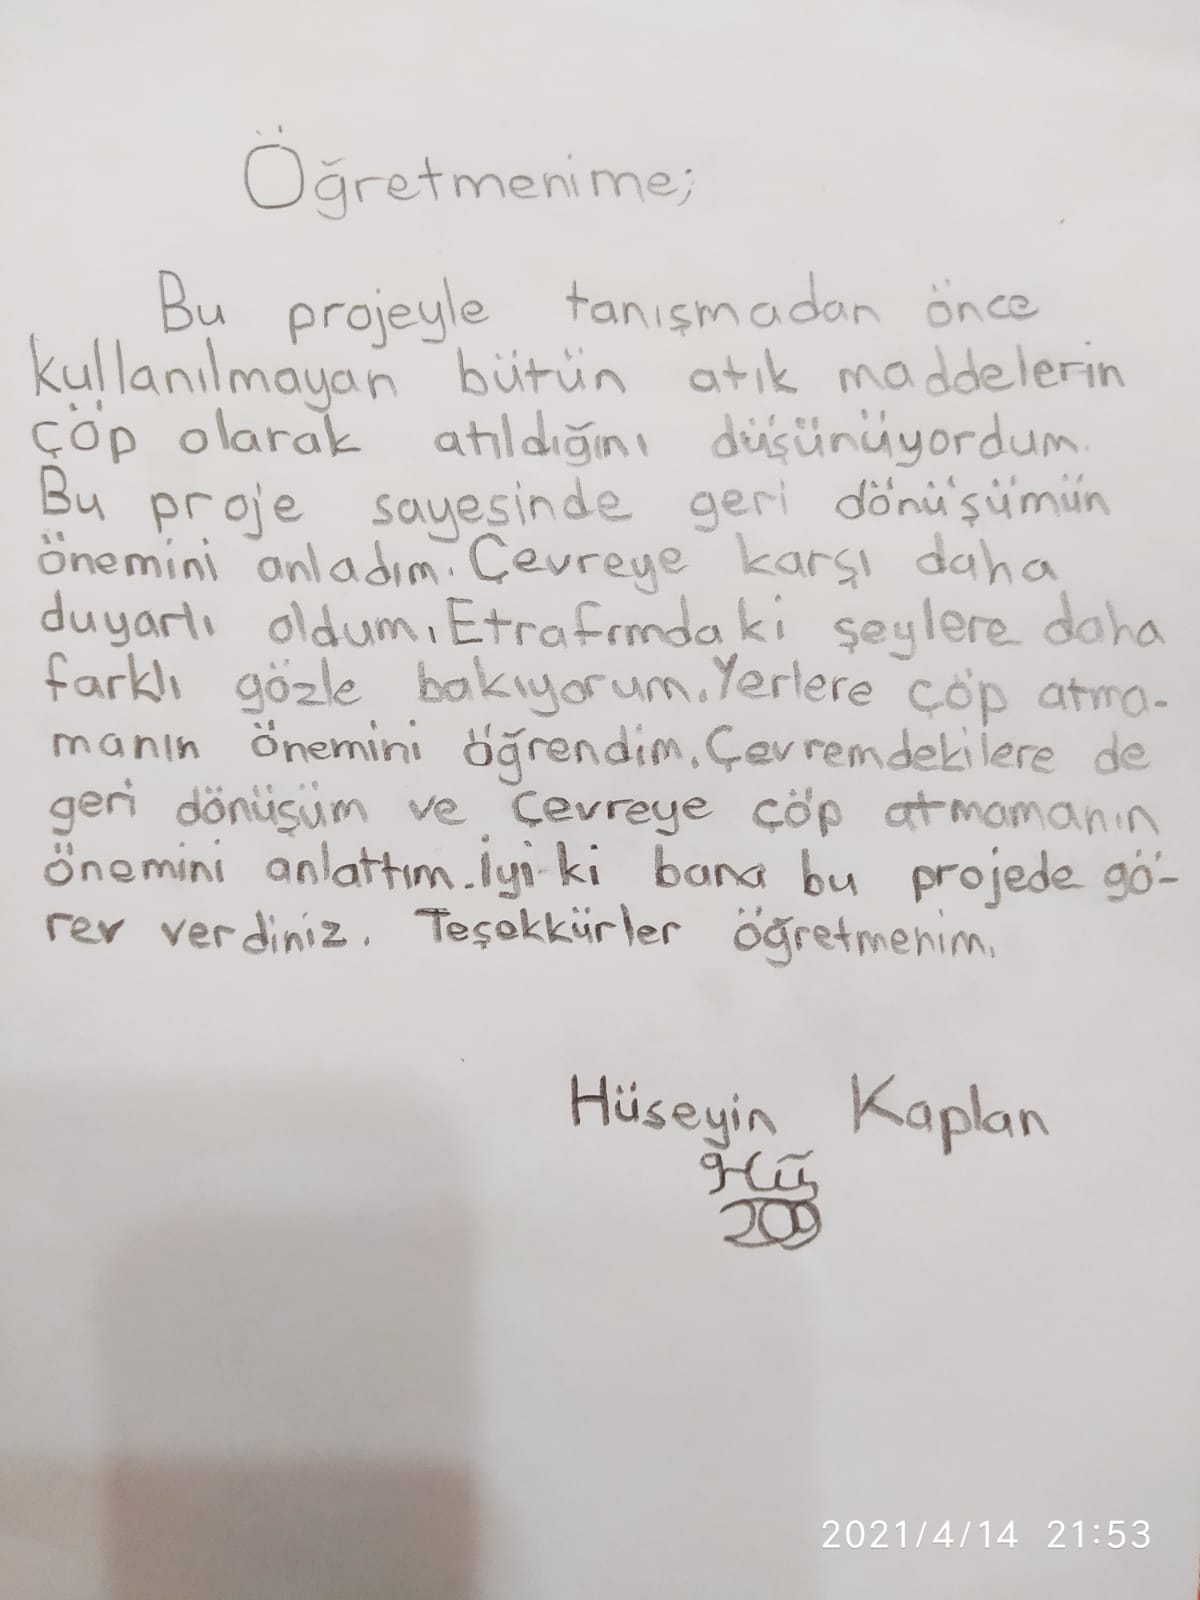 Öğretmenime;
Bu projeyle tanışmadan önce
kullanılmayan bütün atık maddelerin
çöp olarak atıldığını düşünüyordum.
Bu proje sayesinde geri dönüşümün
önemini anladım. Çevreye karşı daha
duyarlı oldum. Etrafımdaki şeylere daha
farklı gözle bakıyorum. Yerlere çöp atma-
manın önemini öğrendim. Çevremdekilere de
geri dönüşüm ve çevreye çöp atmamanın
önemini anlattım. İyi ki bana bu projede gö-
rev verdiniz. Teşekkürler öğretmenim.
Hüseyin Kaplan
Hüş
209
2021/4/14 21:53